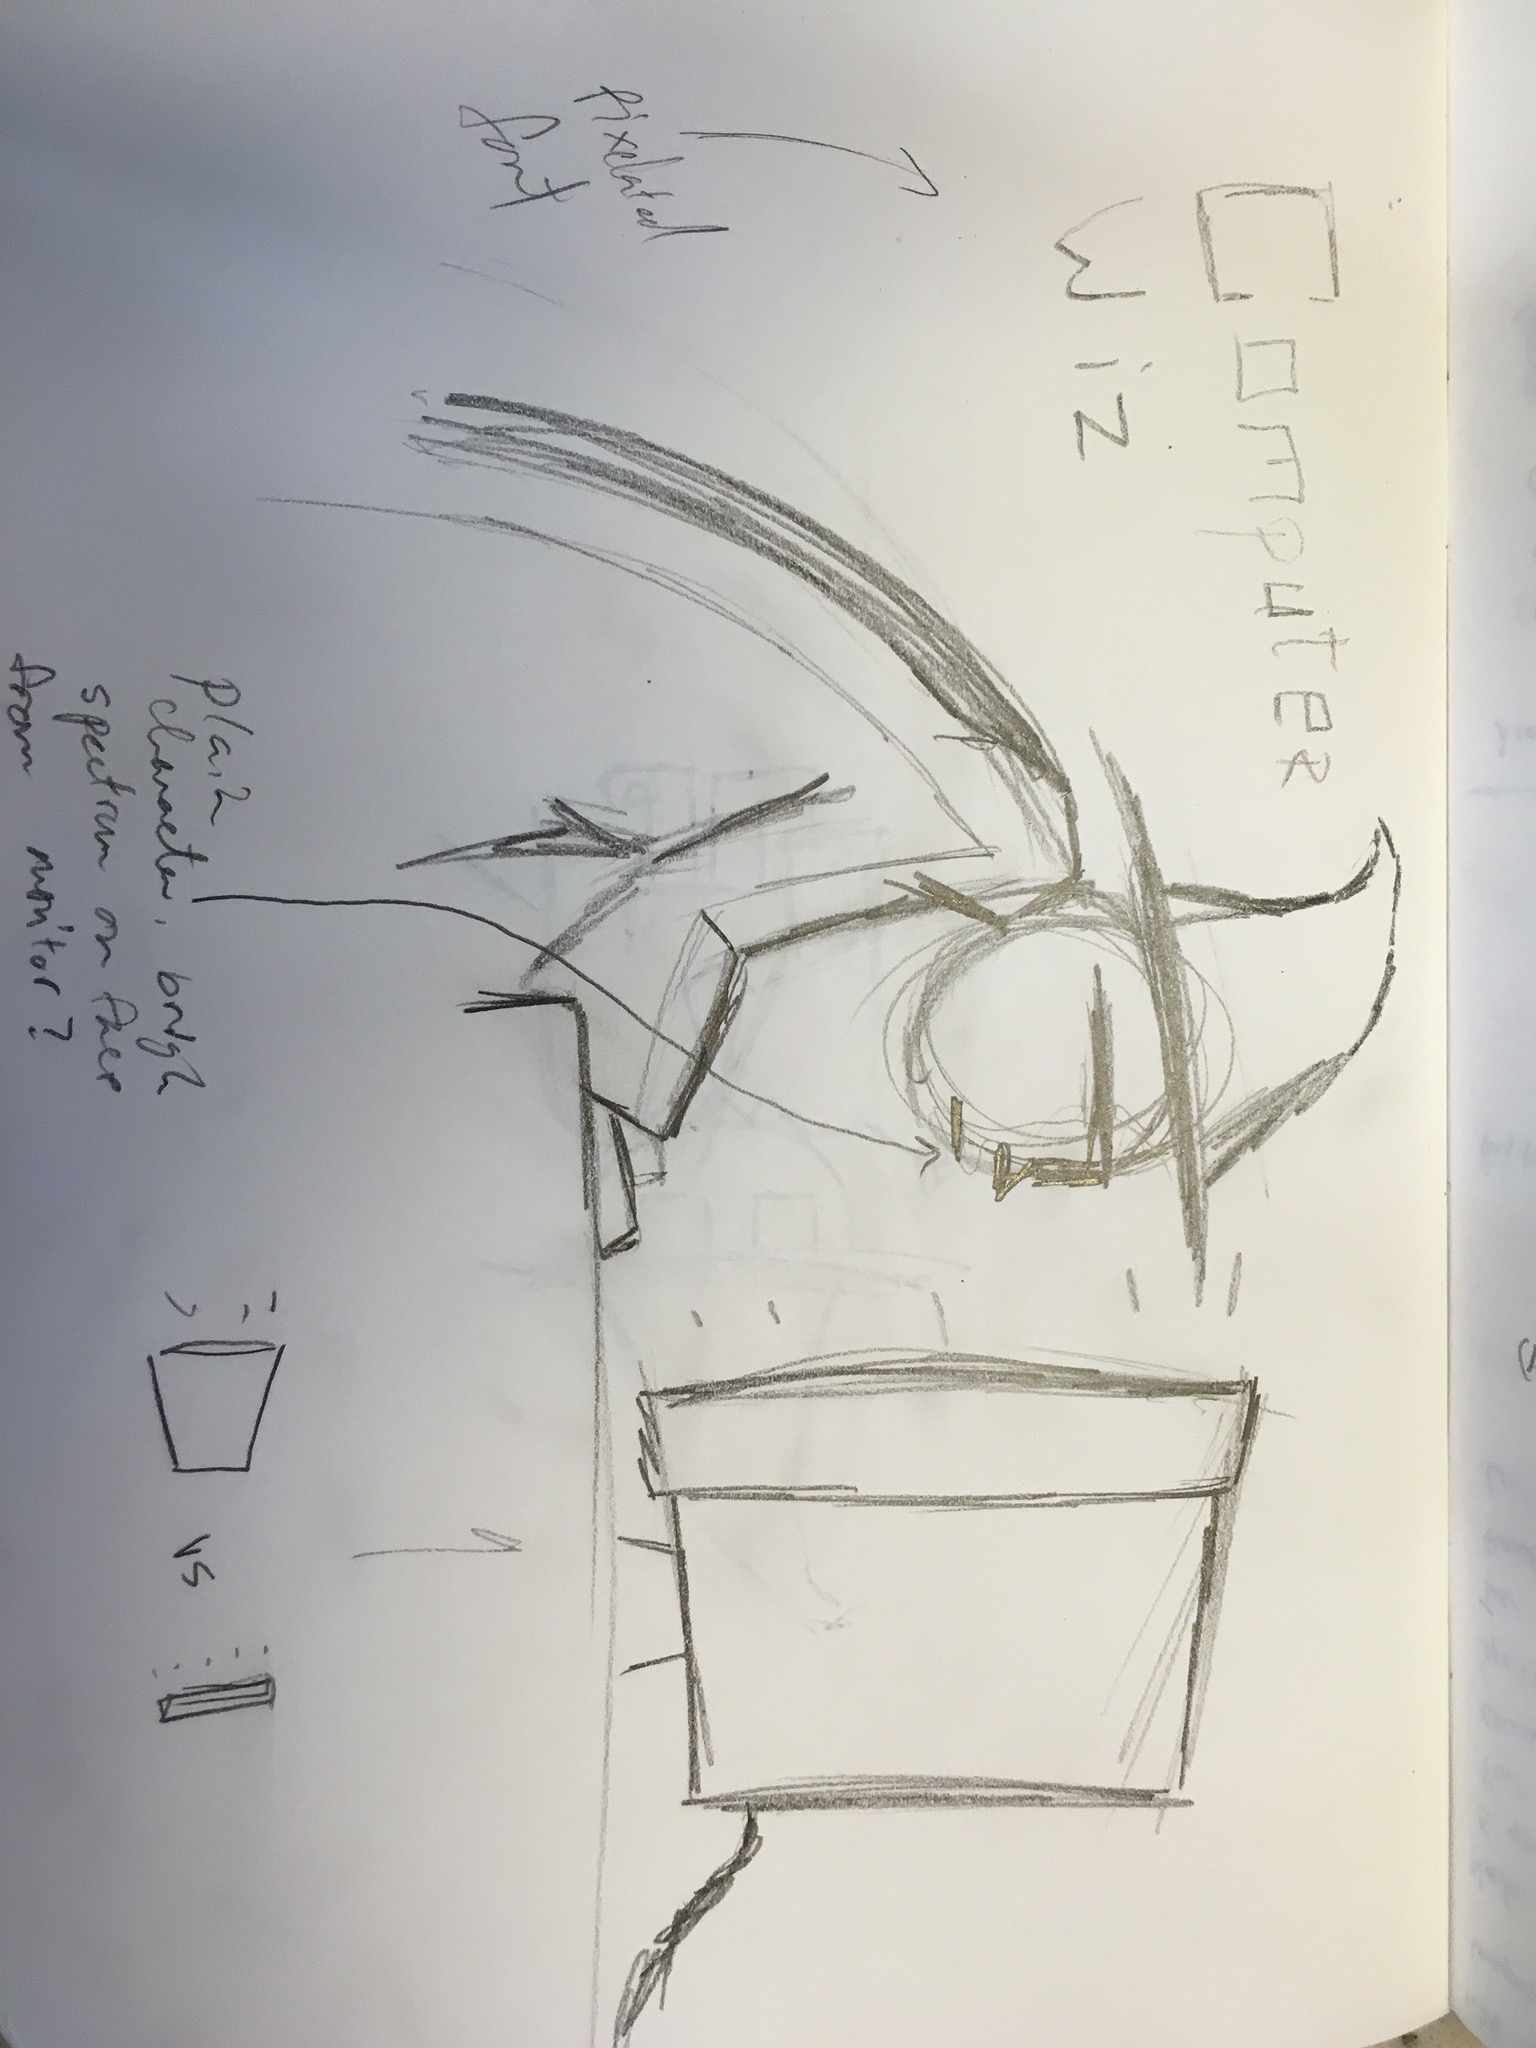 Computer
Wiz
pixelated
font
plain
character, bright
spectrum on
from monitor?
vs